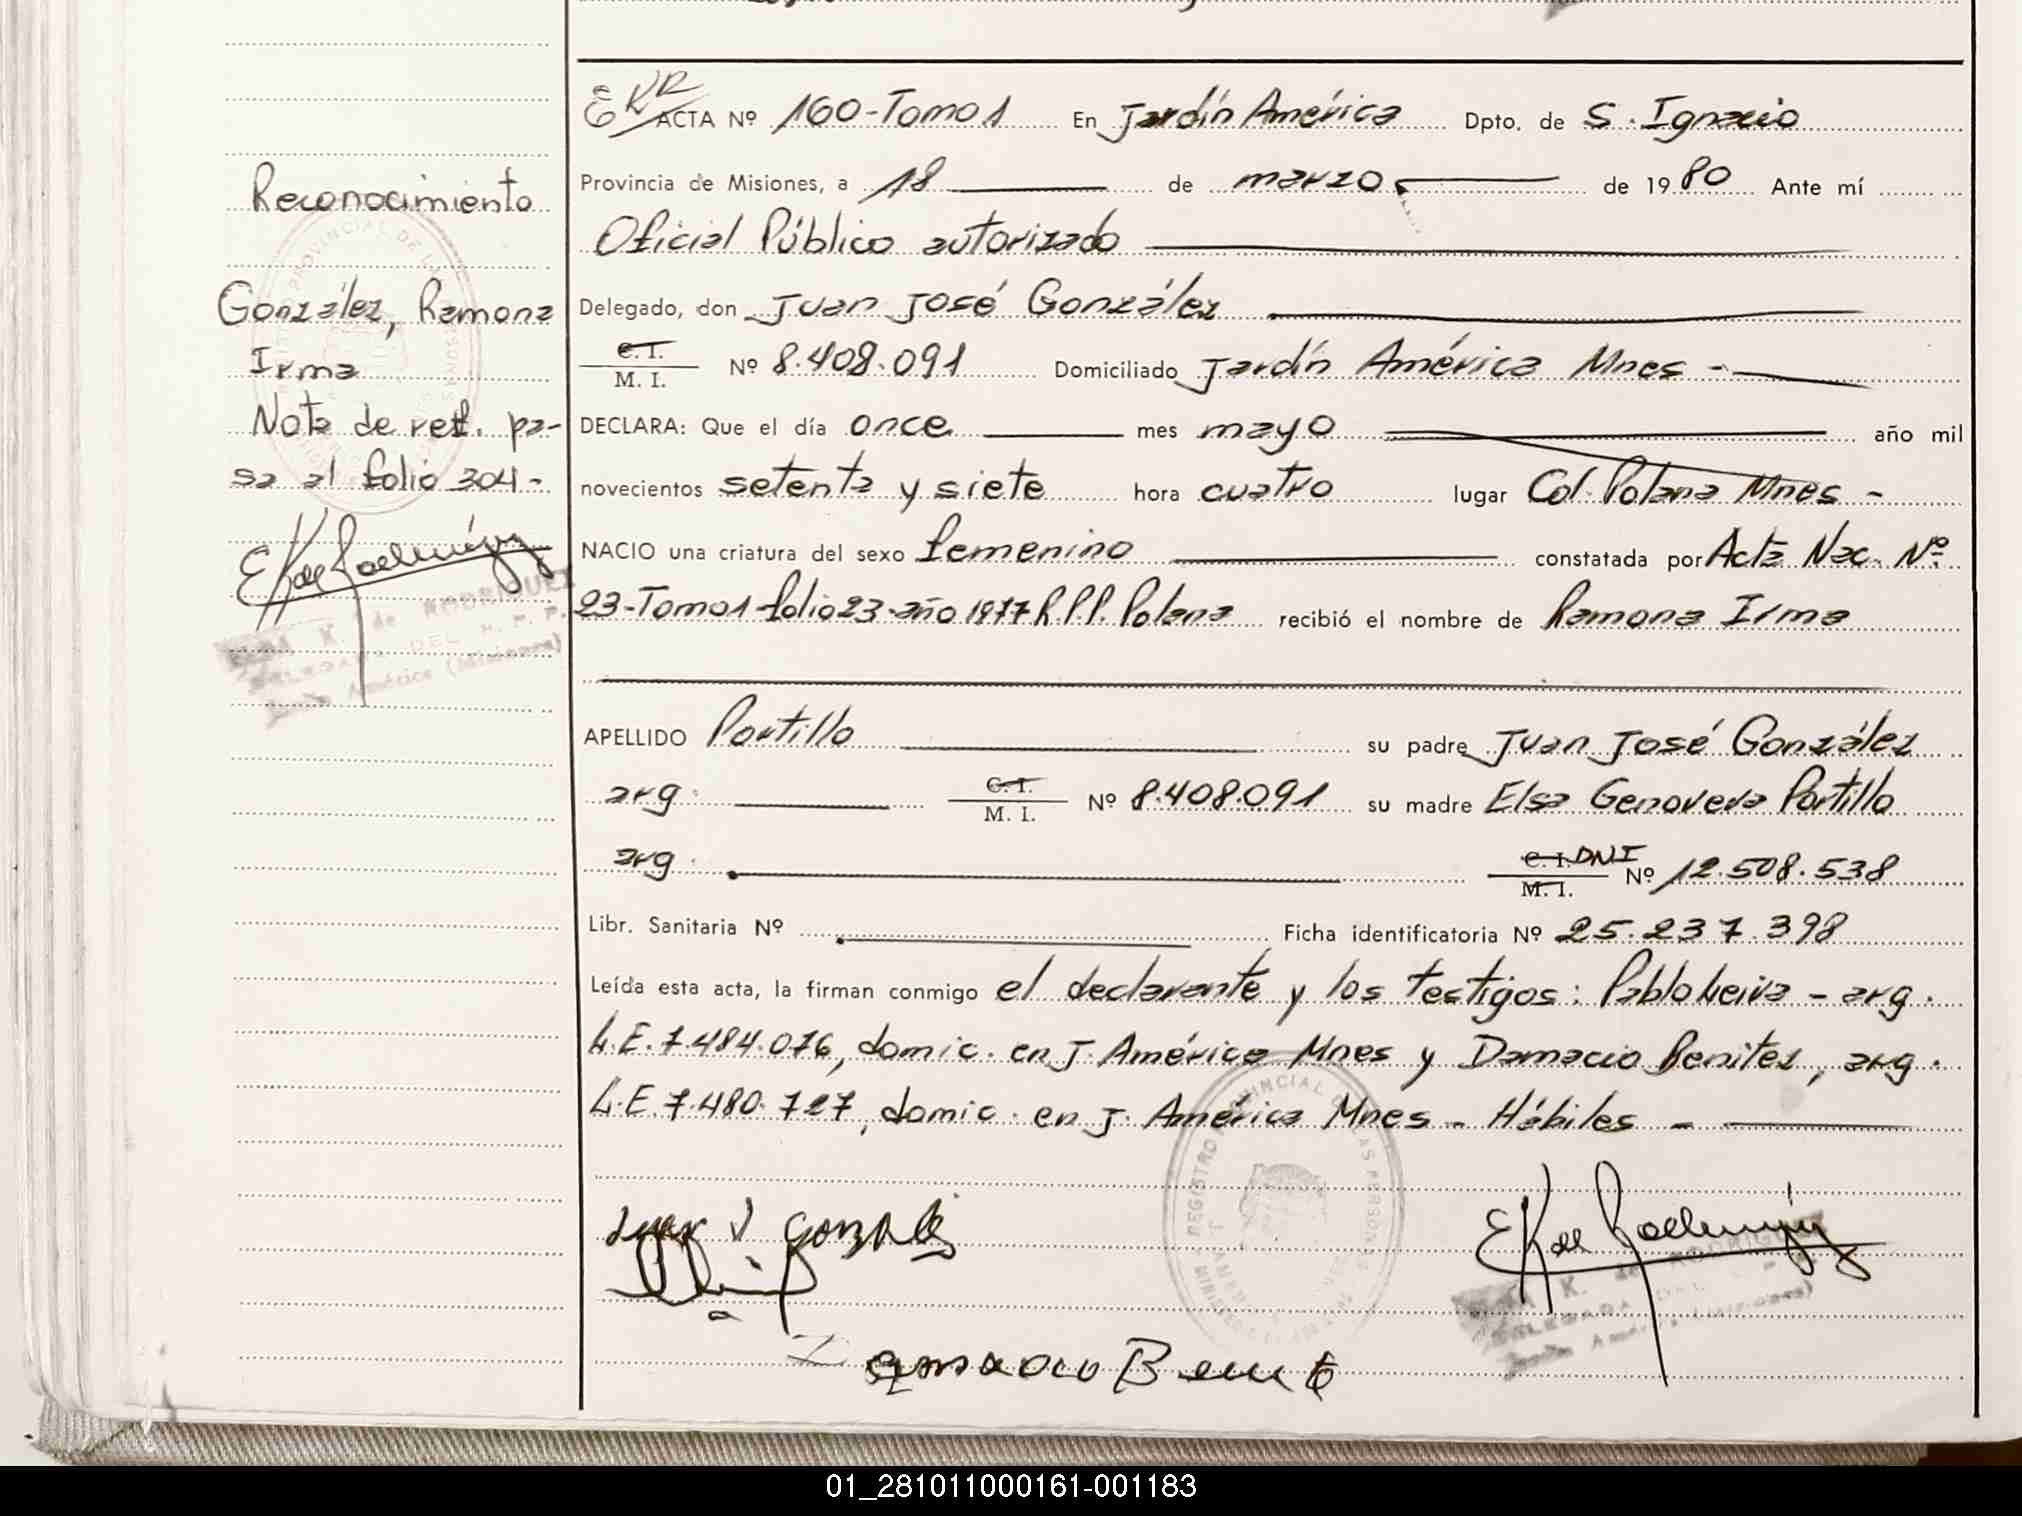 Reconocimiento
González, Ramona
Irma
Nota de ret. pa-
sa al folio 304-
E K de Rodríguez
K. de RODRIGUEZ
DELEGADA DEL R. P. P.
Jardín América (Misiones)
EKR
ACTA Nº 160-Tomo 1 En Jardín América Dpto. de S. Ignacio
Provincia de Misiones, a 18 de marzo de 1980 Ante mí
Oficial Público autorizado
Delegado, don Juan José González
C. I.
M. I. Nº 8.408.091 Domiciliado Jardín América Mnes -
DECLARA: Que el día once mes mayo año mil
novecientos setenta y siete hora cuatro lugar Col. Polana Mnes -
NACIO una criatura del sexo femenino constatada por Acta Nac. Nº
23-Tomo 1-folio 23-año 1977 R.P.P. Polana recibió el nombre de Ramona Irma
APELLIDO Portillo su padre Juan José González
arg. C. I.
M. I. Nº 8.408.091 su madre Elsa Genoveva Portillo
arg. C. I. DNI
M. I. Nº 12.508.538
Libr. Sanitaria Nº Ficha identificatoria Nº 25.237.398
Leída esta acta, la firman conmigo el declarante y los testigos: Pablo Leiva - arg.
L.E. 7.484.076, domic. en J. América Mnes y Damacio Benitez, arg.
L.E. 7.480.727, domic. en J. América Mnes - Hábiles -
REGISTRO PROVINCIAL DE LAS PERSONAS
Juan J González
E K de Rodríguez
K. de RODRIGUEZ
DELEGADA DEL
Jardín América (Misiones)
01_281011000161-001183